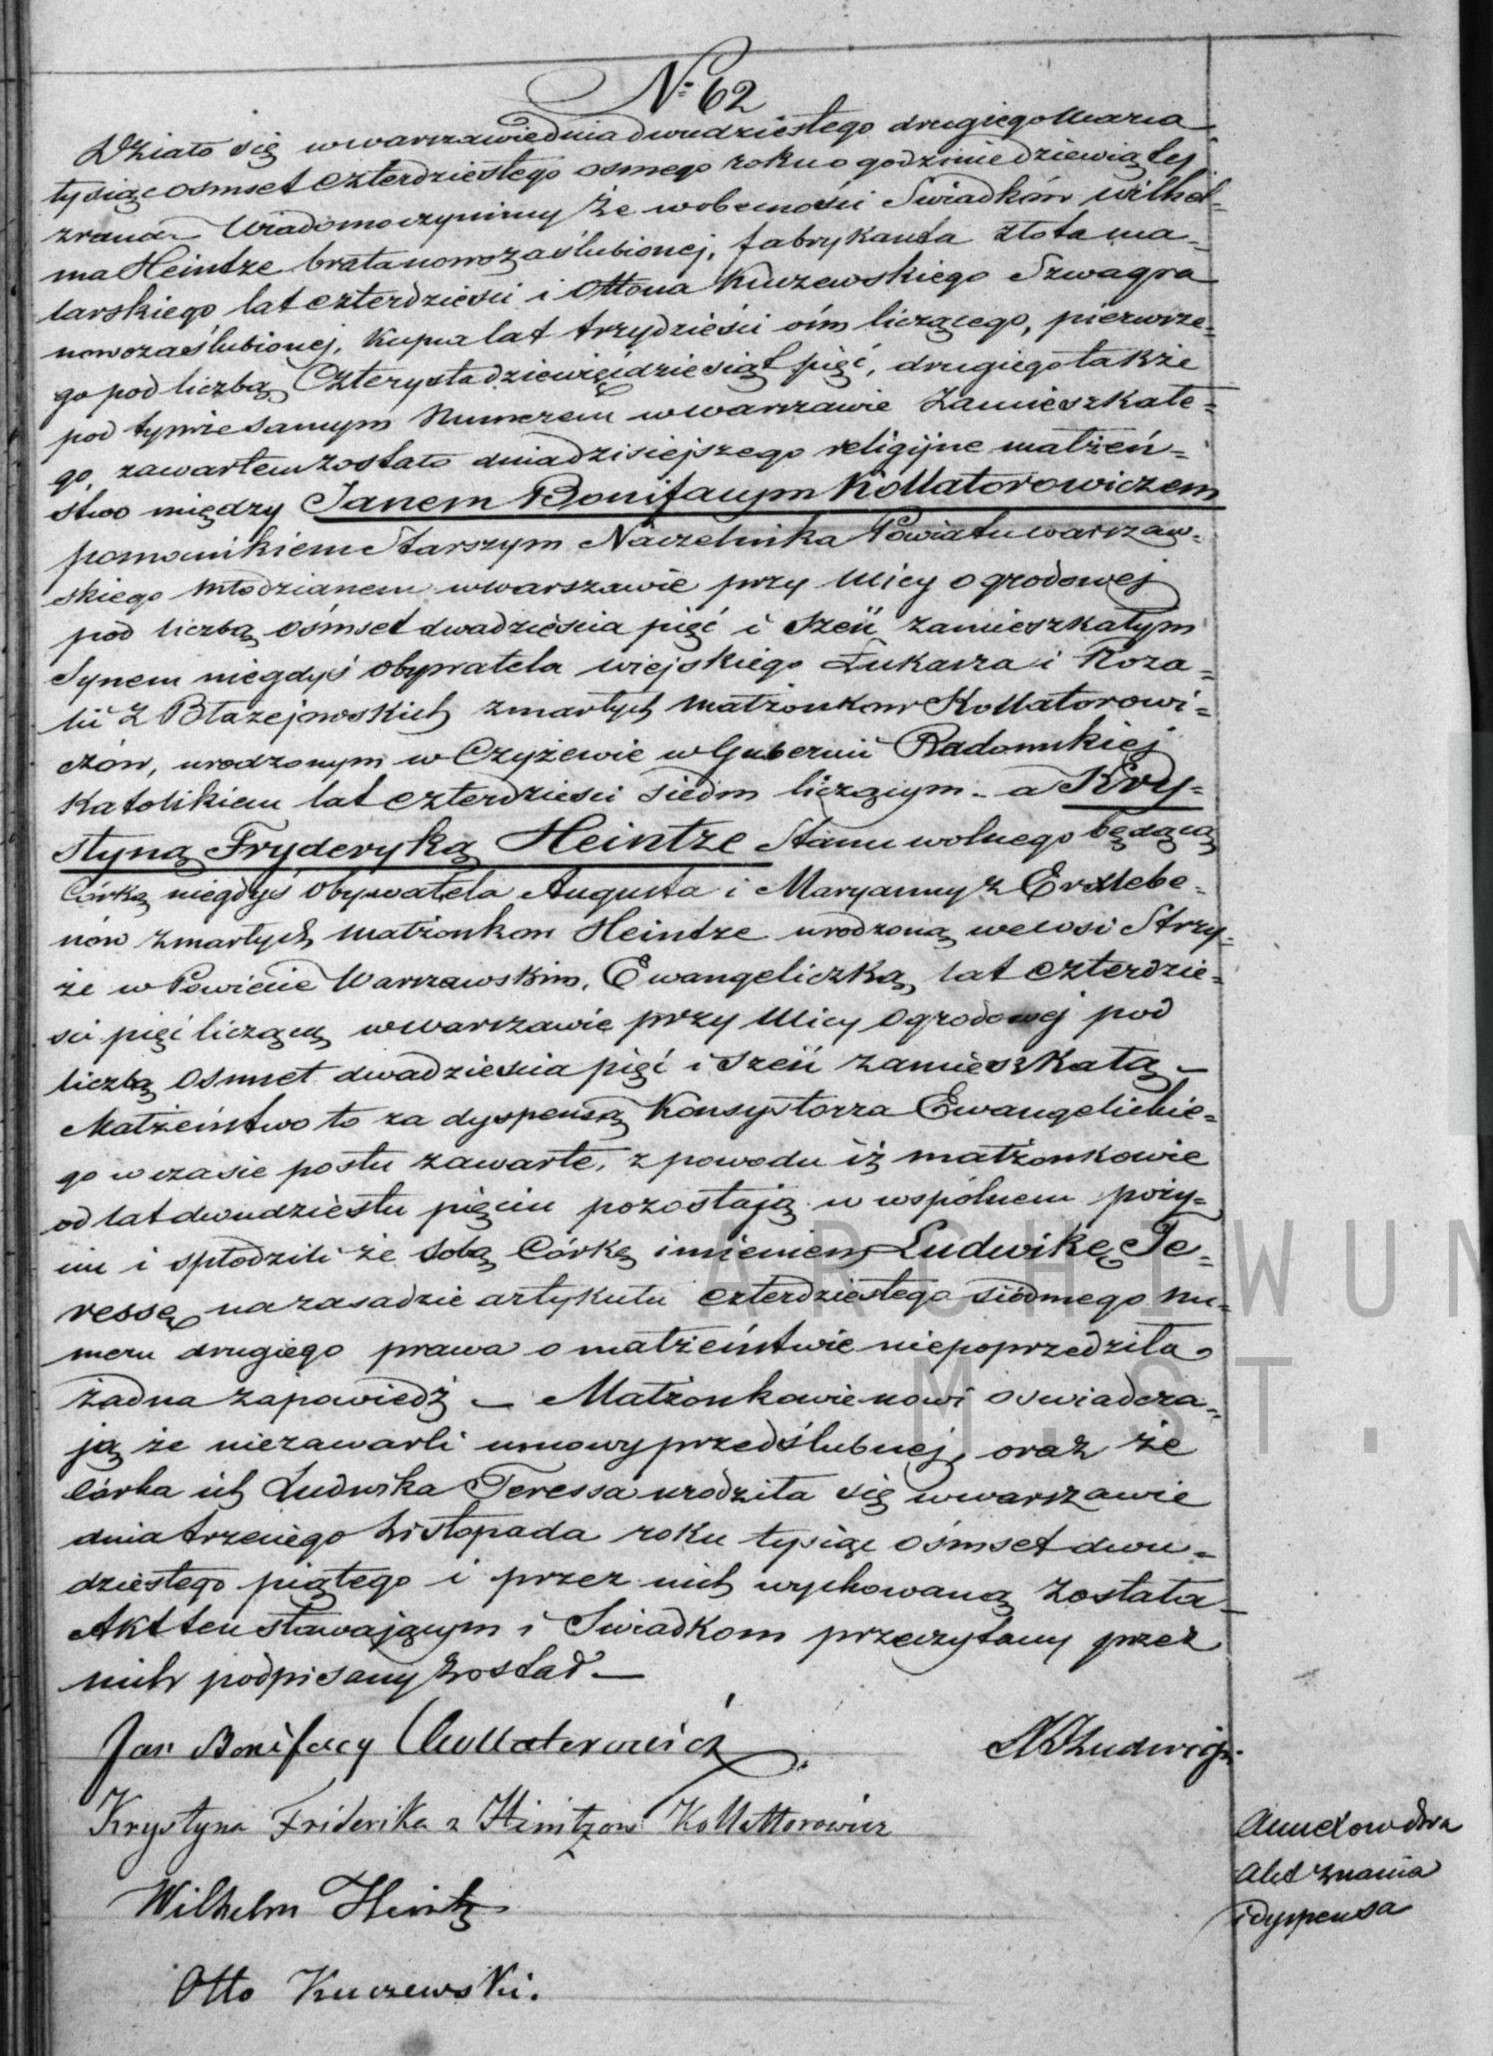 N: 62
Działo się w Warszawie dnia dwudziestego drugiego Marca
tysiąc osmset czterdziestego osmego roku o godzinie dziewiątej
zrana Wiadomo czynimy że w obecności Swiadków Wilhel=
ma Heintze brata nowozaślubionej, fabrykanta złota ma=
larskiego lat czterdzieści i Ottona Kuczewskiego Szwagra
nowozaślubionej, Kupca lat trzydzieści ośm liczącego, pierwsze=
go pod liczbą Czterysta dziewięćdziesiąt pięć, drugiego także
pod tymże samym Numerem w Warszawie Zamieszkałe=
go, zawartem zostało dnia dzisiejszego religijne małżeń=
stwo między Janem Bonifacym Kollatorowiczem
pomocnikiem Starszym Naczelnika Powiatu Warszaw=
skiego Młodzianem w Warszawie przy Ulicy Ogrodowej
pod liczbą Ośmset dwadzieścia pięć i Sześć zamieszkałym
Synem niegdyś Obywatela wiejskiego Łukasza i Roza=
lii z Błażejowskich zmarłych Małżonków Kollatorowi=
czów, urodzonym w Czyżewie w Gubernii Radomskiej
Katolikiem lat czterdzieści siedm liczącym - a Kry=
styną Fryderyką Heintze Stanu wolnego będącą
Córką niegdyś Obywatela Augusta i Maryanny z Erxlebe=
nów zmarłych Małżonków Heintze urodzoną we wsi Strzy=
że w Powiecie Warszawskim, Ewangeliczką, lat czterdzie=
sci pięć liczącą w Warszawie przy Ulicy Ogrodowej pod
liczbą Osmset dwadzieścia pięć i sześć zamieszkałą –
Małżeństwo to za dyspensą Konsystorza Ewangelickie=
go w czasie postu zawarte, z powodu iż małżonkowie
od lat dwudziestu pięciu pozostają w wspólnem poży=
ciu i spłodzili ze sobą Córkę imieniem Ludwikę Te=
ressę na zasadzie artykułu czterdziestego siódmego nu=
meru drugiego prawa o małżeństwie niepoprzedziła
żadna zapowiedź – Małżonkowie nowi oswiadcza=
ją że niezawarli umowy przedślubnej, oraz że
Córka ich Ludwika Teressa urodziła się w Warszawie
dnia trzeciego Listopada roku tysiąc ośmset dwu=
dziestego piątego i przez nich wychowaną została
Akt ten stawającym i Swiadkom przeczytany przez
nich podpisany został –
Jan Bonifacy Kollatorowicz
Ludwig
Krystyna Friderika z Hintzow Kollatorowicz
Wilhelm Hintz
Otto Kuczewski.
Akt znania
i dyspensa
ARCHIWUM
M. ST.